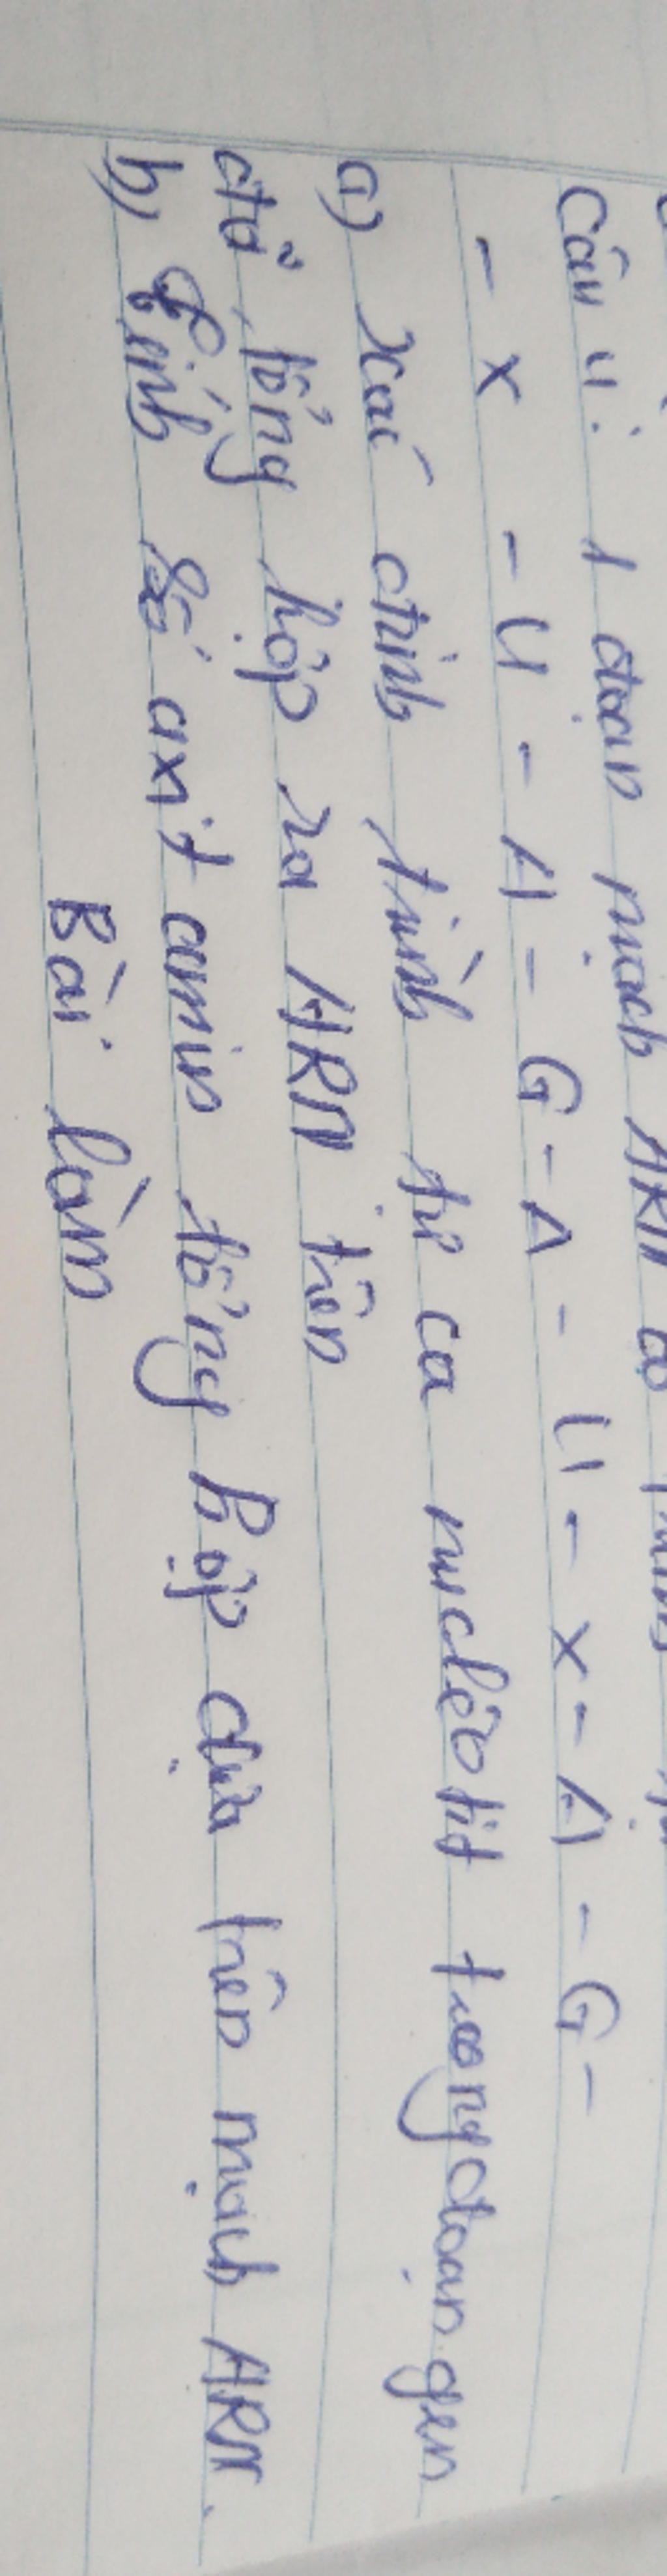 Câu 4: 1 đoạn mạch ARN có
- X - U - A - G - A - U - X - A - G -
a) Xác định trình tự ca nuclêôtit trong đoạn gen
đã tổng hợp ra ARN trên
b) Tính số axit amin tổng hợp dựa trên mạch ARN.
Bài làm